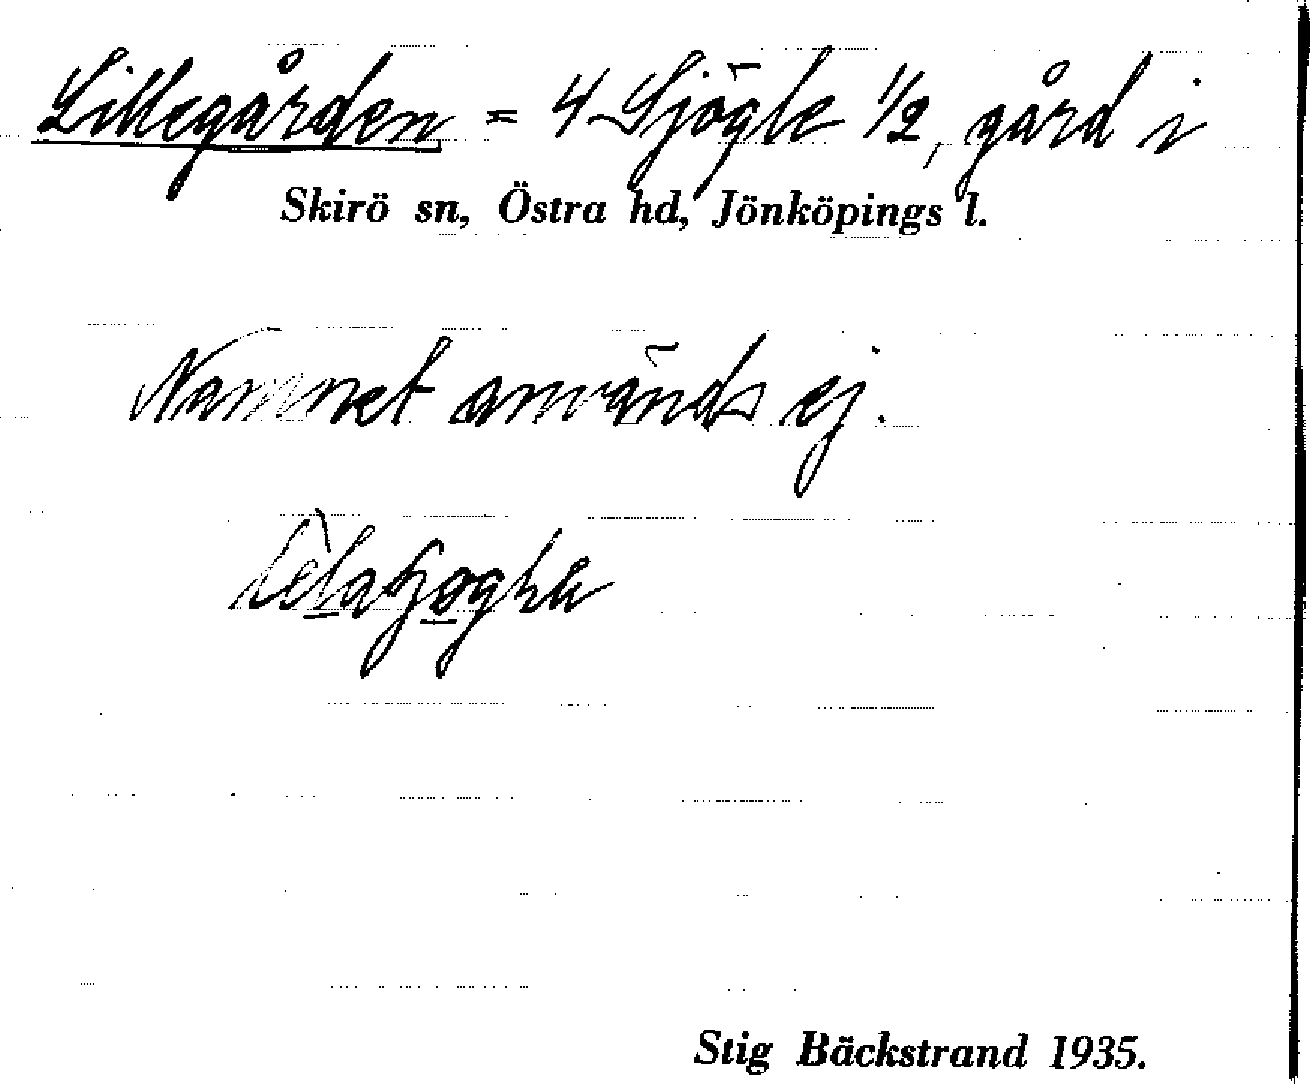 Lillegården = 4 Sjögle 1/2, gård i
Skirö sn, Östra hd, Jönköpings l.
Namnet används ej.
Stig Bäckstrand 1935.